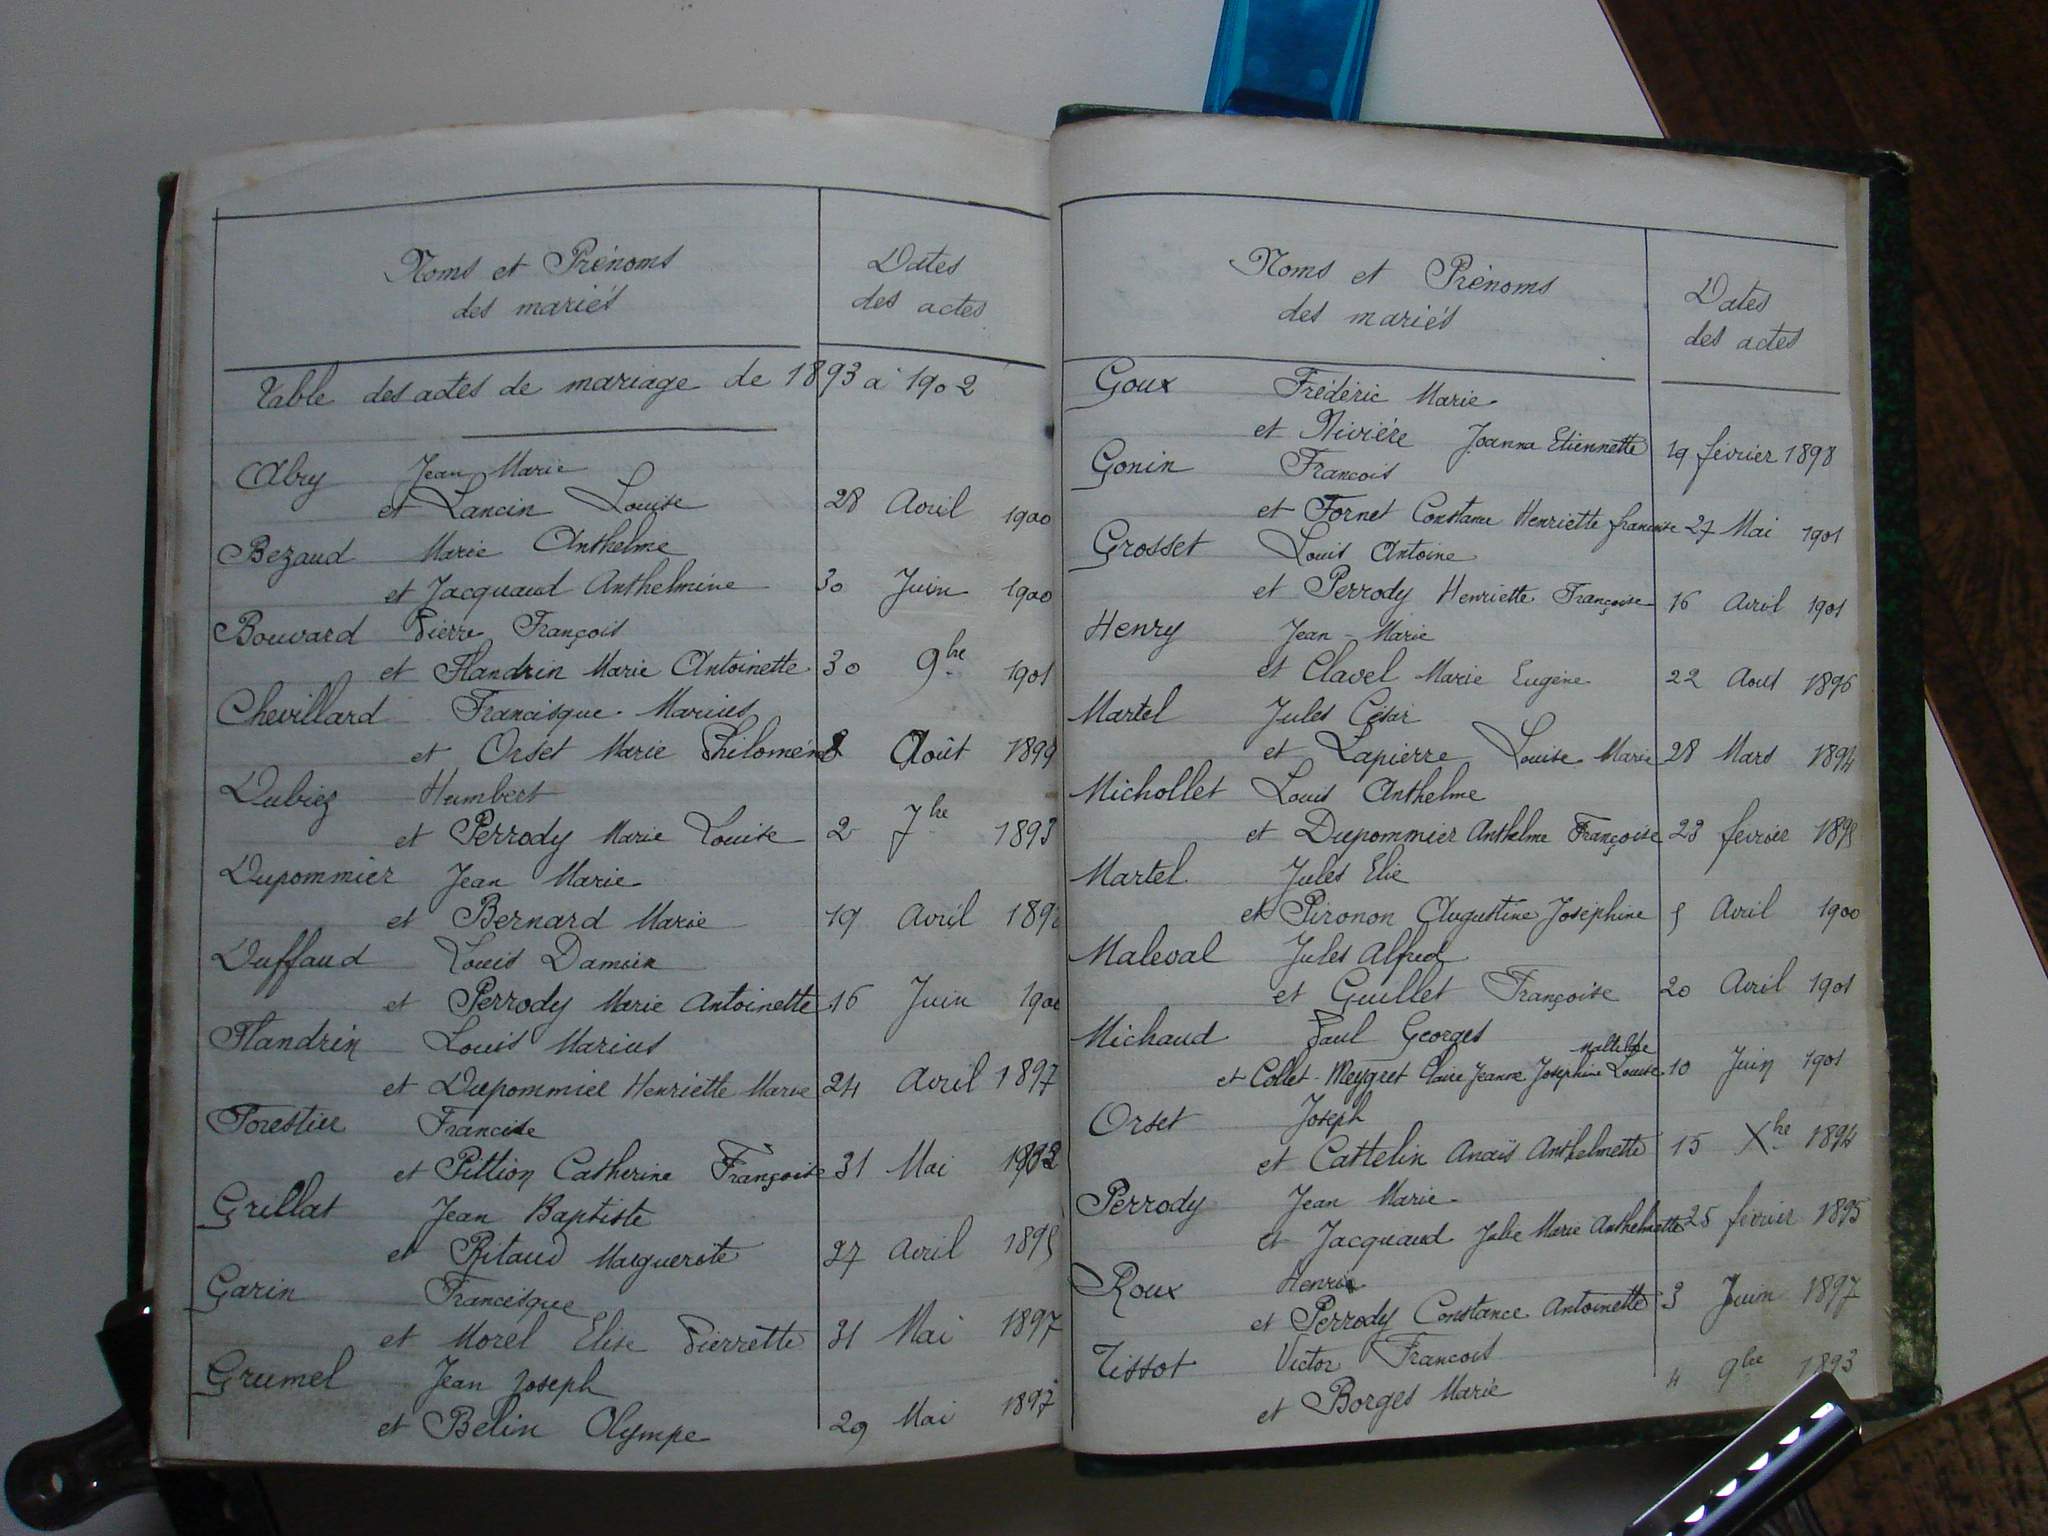 Noms et Prénoms
des mariés
Dates
des actes
Table des actes de mariage de 1893 à 1902
Abry Jean Marie
et Lancin Louise 28 Avril 1900
Bezaud Marie Anthelme
et Jacquaud Anthelmine 30 Juin 1900
Bouvard Pierre François
et Flandrin Marie Antoinette 30 9bre 1901
Chevillard Francisque Marius
et Orset Marie Août 1899
Dubiez Humbert
et Perrody Marie Louise 2 7bre 1893
Dupommier Jean Marie
et Bernard Marie 19 Avril
Duffaud Louis Damien
et Perrody Marie Antoinette 16 Juin
Flandrin Louis Marius
et Dupommier Henriette Marie 24 Avril 1897
Forestier
et Pittion Catherine Françoise 31 Mai
Grillat Jean Baptiste
et Ritaud Marguerite 27 Avril
Garin Francisque
et Morel Elise Pierrette 31 Mai 1897
Grumel Jean Joseph
et Belin Olympe 29 Mai 1897
Noms et Prénoms
des mariés
Dates
des actes
Goux Frédéric Marie
et Rivière Joanna Etiennette 19 février 1898
Gonin Francois
et Fornet Constance Henriette francoise 27 Mai 1901
Grosset Louis Antoine
et Perrody Henriette Françoise 16 Avril 1901
Henry Jean-Marie
et Clavel Marie Eugène 22 Aout 1896
Martel Jules César
et Lapierre Louise Marie 28 Mars 1894
Michollet Louis Anthelme
et Dupommier Anthelme Françoise 23 fevrier
Martel Jules Elie
et Pironon Augustine Joséphine Avril 1900
Maleval Jules Alfred
et Guillet Françoise 20 Avril 1901
Michaud Paul Georges
et Collet-Meygret Claire Jeanne Josephine Louise 10 Juin 1901
Orset Joseph
et Cattelin Anaïs Anthelmette 15 Xbre 1894
Perrody Jean Marie
et Jacquaud Julie Marie Anthelmette 25 février 1895
Roux Henri
et Perrody Constance Antoinette 3 Juin 1897
Tissot Victor Francois
et Borges Marie 4 9bre 1893